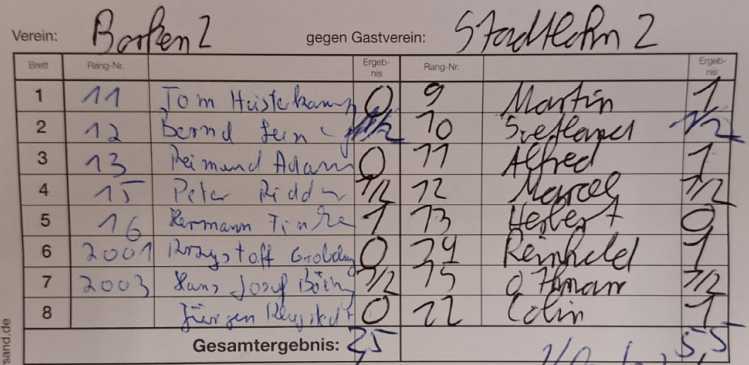 Verein: Borken 2 gegen Gastverein: Stadtlohn 2
Brett Rang-Nr. Ergeb-nis Rang-Nr. Ergeb-nis
1 11 Tom 0 9 Martin 1
2 12 Bernd 1/2 10 1/2
3 13 Reimund Adam 0 11 Alfred 1
4 15 Peter 1/2 12 Marcel 1/2
5 16 Hermann 1 13 Herbert 0
6 2001 0 14 Reinhold 1
7 2003 Hans Josef 1/2 15 Othmar 1/2
8 Jürgen 0 22 Colin 1
Gesamtergebnis: 2,5 5,5
sand.de